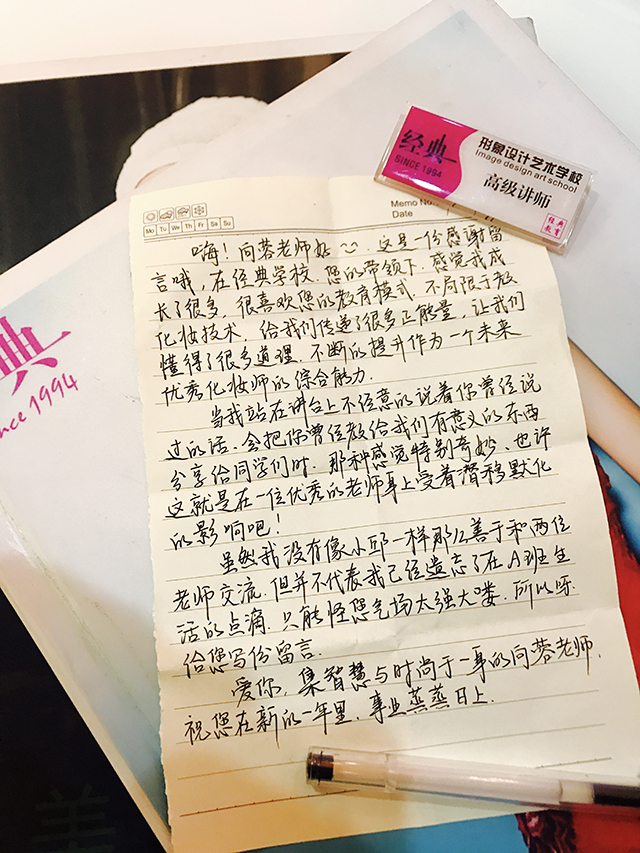 经典
SINCE 1994
形象设计艺术学校
Image design art school
高级讲师
经典
教育
Memo No.
Date
Mo Tu We Th Fr Sa Su
嗨！向蓉老师好 这是一份感谢留
言哦，在经典学校，您的带领下，感觉我成
长了很多，很喜欢您的教育模式，不局限于教
化妆技术，给我们传递了很多正能量，让我们
懂得了很多道理，不断的提升作为一个未来
优秀化妆师的综合能力.
当我站在讲台上不经意的说着你曾经说
过的话，会把你曾经教给我们有意义的东西
分享给同学们时，那种感觉特别奇妙、也许
这就是在一位优秀的老师身上受着潜移默化
的影响吧！
虽然我没有像小邱一样那么善于和两位
老师交流，但并不代表我已经遗忘了在A班生
活的点滴，只能怪您气场太强大喽，所以呀
给您写份留言.
爱你，集智慧与时尚于一身的向蓉老师，
祝您在新的一年里，事业蒸蒸日上.
典
since 1994
美